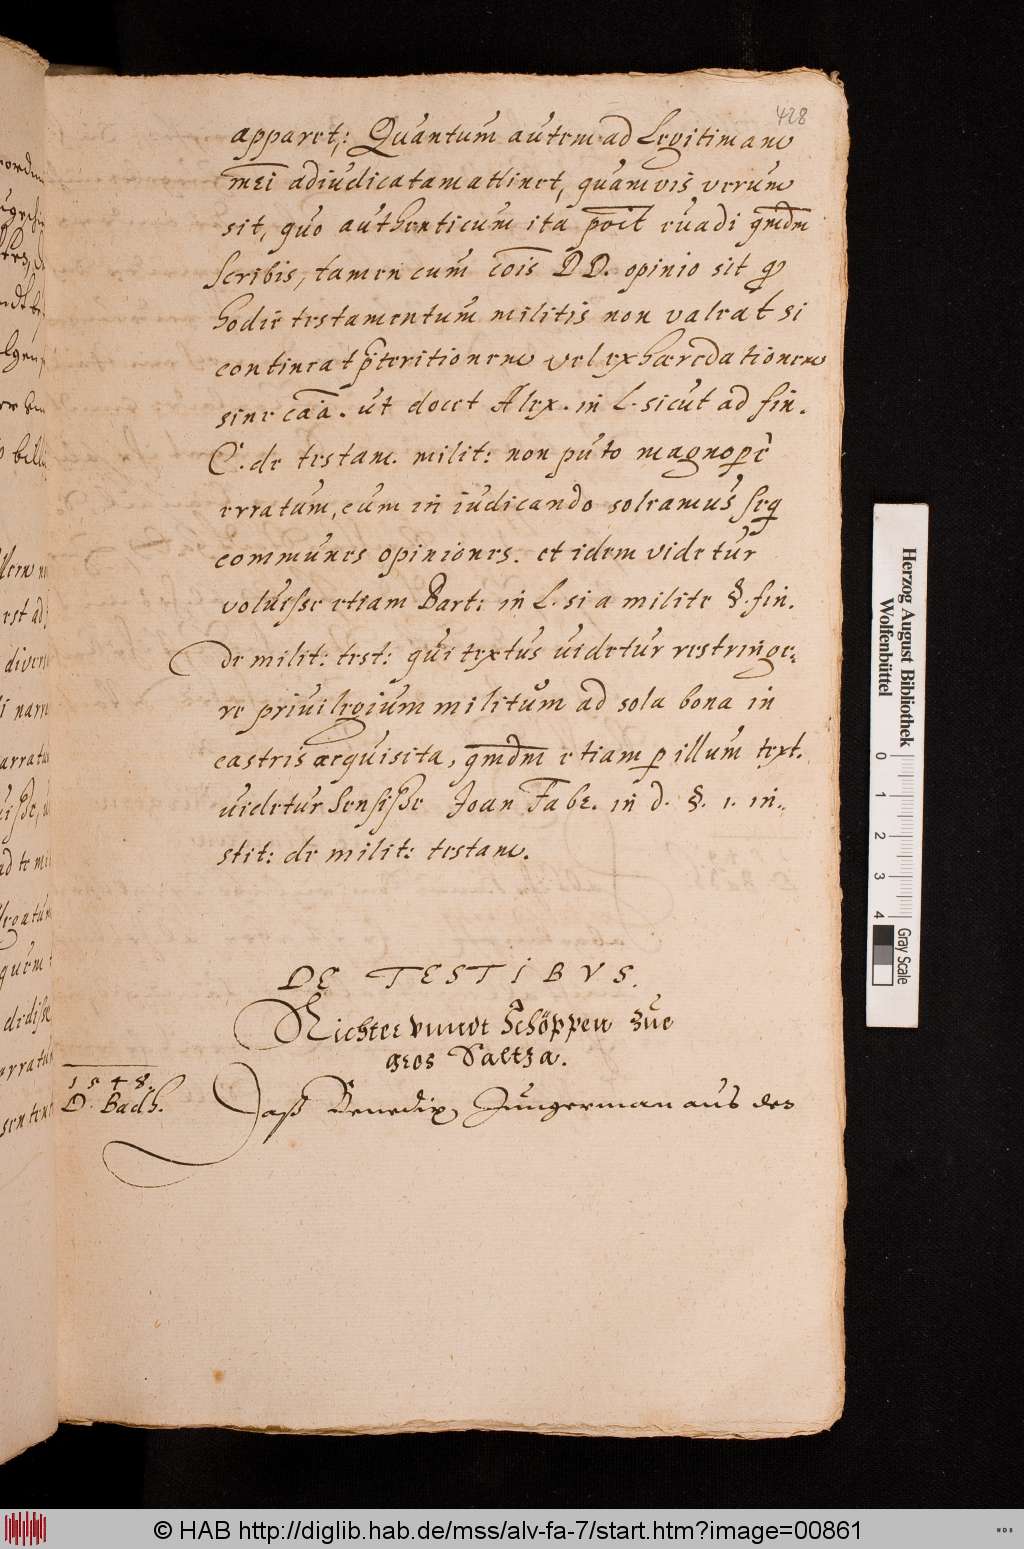 428
apparet,: Quantum autem ad Legitimam
mei adiudicatam attinet, quamvis verum
sit, quo authenticum ita poīt euadi qmdm
scribis, tamen cum cōis DD. opinio sit qđ
hodie testamentum militis non valeat si
contineat p̄teritionem vel exhæredationem
sine caā. ut docet Alex. in L. sicut ad fin.
C. de testam. milit: non puto magnoperè
erratum, cum in iudicando soleamus seq
communes opiniones. et idem videtur
voluisse etiam Bart: in L. si a milite §. fin.
de milit: test: qui textus uidetur restringe-
re priuilegium militum ad sola bona in
castris acquisita, qmdm etiam p illum text.
uidetur sensisse Joan Fabr. in d. §. 1. in-
stit: de milit: testam.
DE TESTIBVS.
Richter vnndt Schöppen zue
gros Saltza.
1548.
D. Bach.
Daß Benedix Jungerman aus der
Herzog August Bibliothek
Wolfenbüttel
0 1 2 3 4
Gray Scale
© HAB http://diglib.hab.de/mss/alv-fa-7/start.htm?image=00861